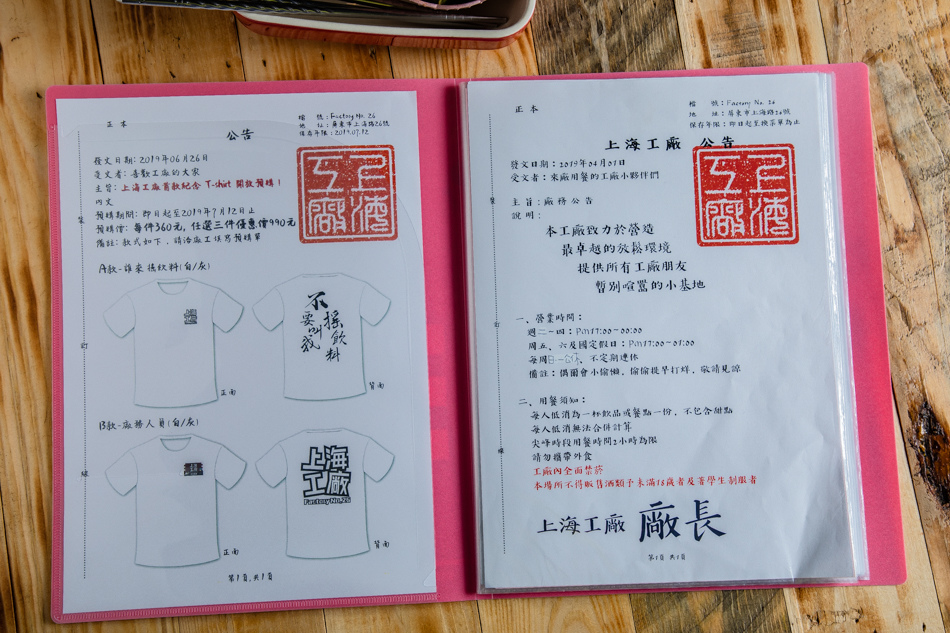 正本
檔 號：Factory No. 26
地 址：屏東市上海路26號
保存年限：2019.07.12
公告
上海工廠
發文日期：2019年06月26日
受文者：喜歡工廠的大家
主旨：上海工廠首款紀念 T-shirt 開放預購！
內文
預購期間：即日起至2019年7月12日止
預購價：每件360元，任選三件優惠價990元
備註：款式如下，請洽廠工填寫預購單
A款-誰來搖飲料(白/灰)
不要叫我
搖飲料
正面
背面
B款-廠務人員(白/灰)
上海工廠
Factory No.26
正面
背面
第1頁，共1頁
裝
訂
線
正本
檔 號：Factory No. 26
地 址：屏東市上海路26號
保存年限：即日起至換菜單為止
上海工廠 公告
上海工廠
發文日期：2019年04月01日
受文者：來廠用餐的工廠小夥伴們
主旨：廠務公告
說明：
本工廠致力於營造
最卓越的放鬆環境
提供所有工廠朋友
暫別喧囂的小基地
一、營業時間：
週二－四：Pm17:00－00:00
周五、六及國定假日：Pm17:00－01:00
每周日一公休，不定期連休
備註：偶爾會小偷懶，偷偷提早打烊，敬請見諒
二、用餐須知：
每人低消為一杯飲品或餐點一份，不包含甜點
每人低消無法合併計算
尖峰時段用餐時間2小時為限
請勿攜帶外食
工廠內全面禁菸
本場所不得販售酒類予未滿18歲者及著學生制服者
上海工廠 廠長
第1頁 共1頁
裝
訂
線